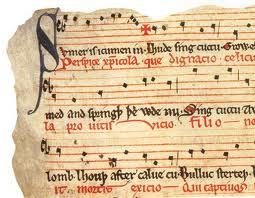 Sumer is icumen in. Lhude sing cuccu. Groweþ
Perspice xpicola. que dignacio. celicus
med and springþ þe wde nu. Sing cuccu. A
la pro uitis vicio. filio n
lomb. lhouþ after calue cu. Bulluc sterteþ.
it. mortis exicio. Qui captiuos